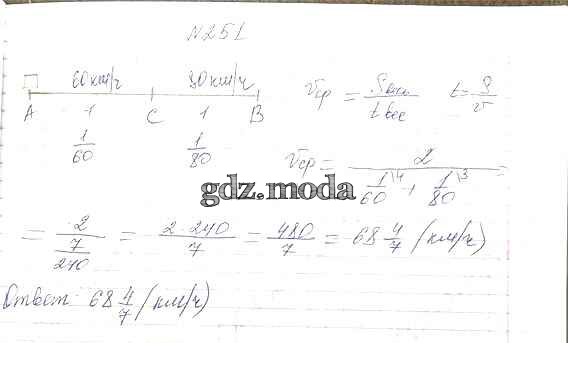 N251
60км/ч 80км/ч
A 1 C 1 B
1/60 1/80
Vср = Sвсе/tвсе t = S/v
Vср = 2/(1/60\4 + 1/80\3)
gdz.moda
= 2/(7/240) = 2·240/7 = 480/7 = 68 4/7 (км/ч)
Ответ: 68 4/7 (км/ч)